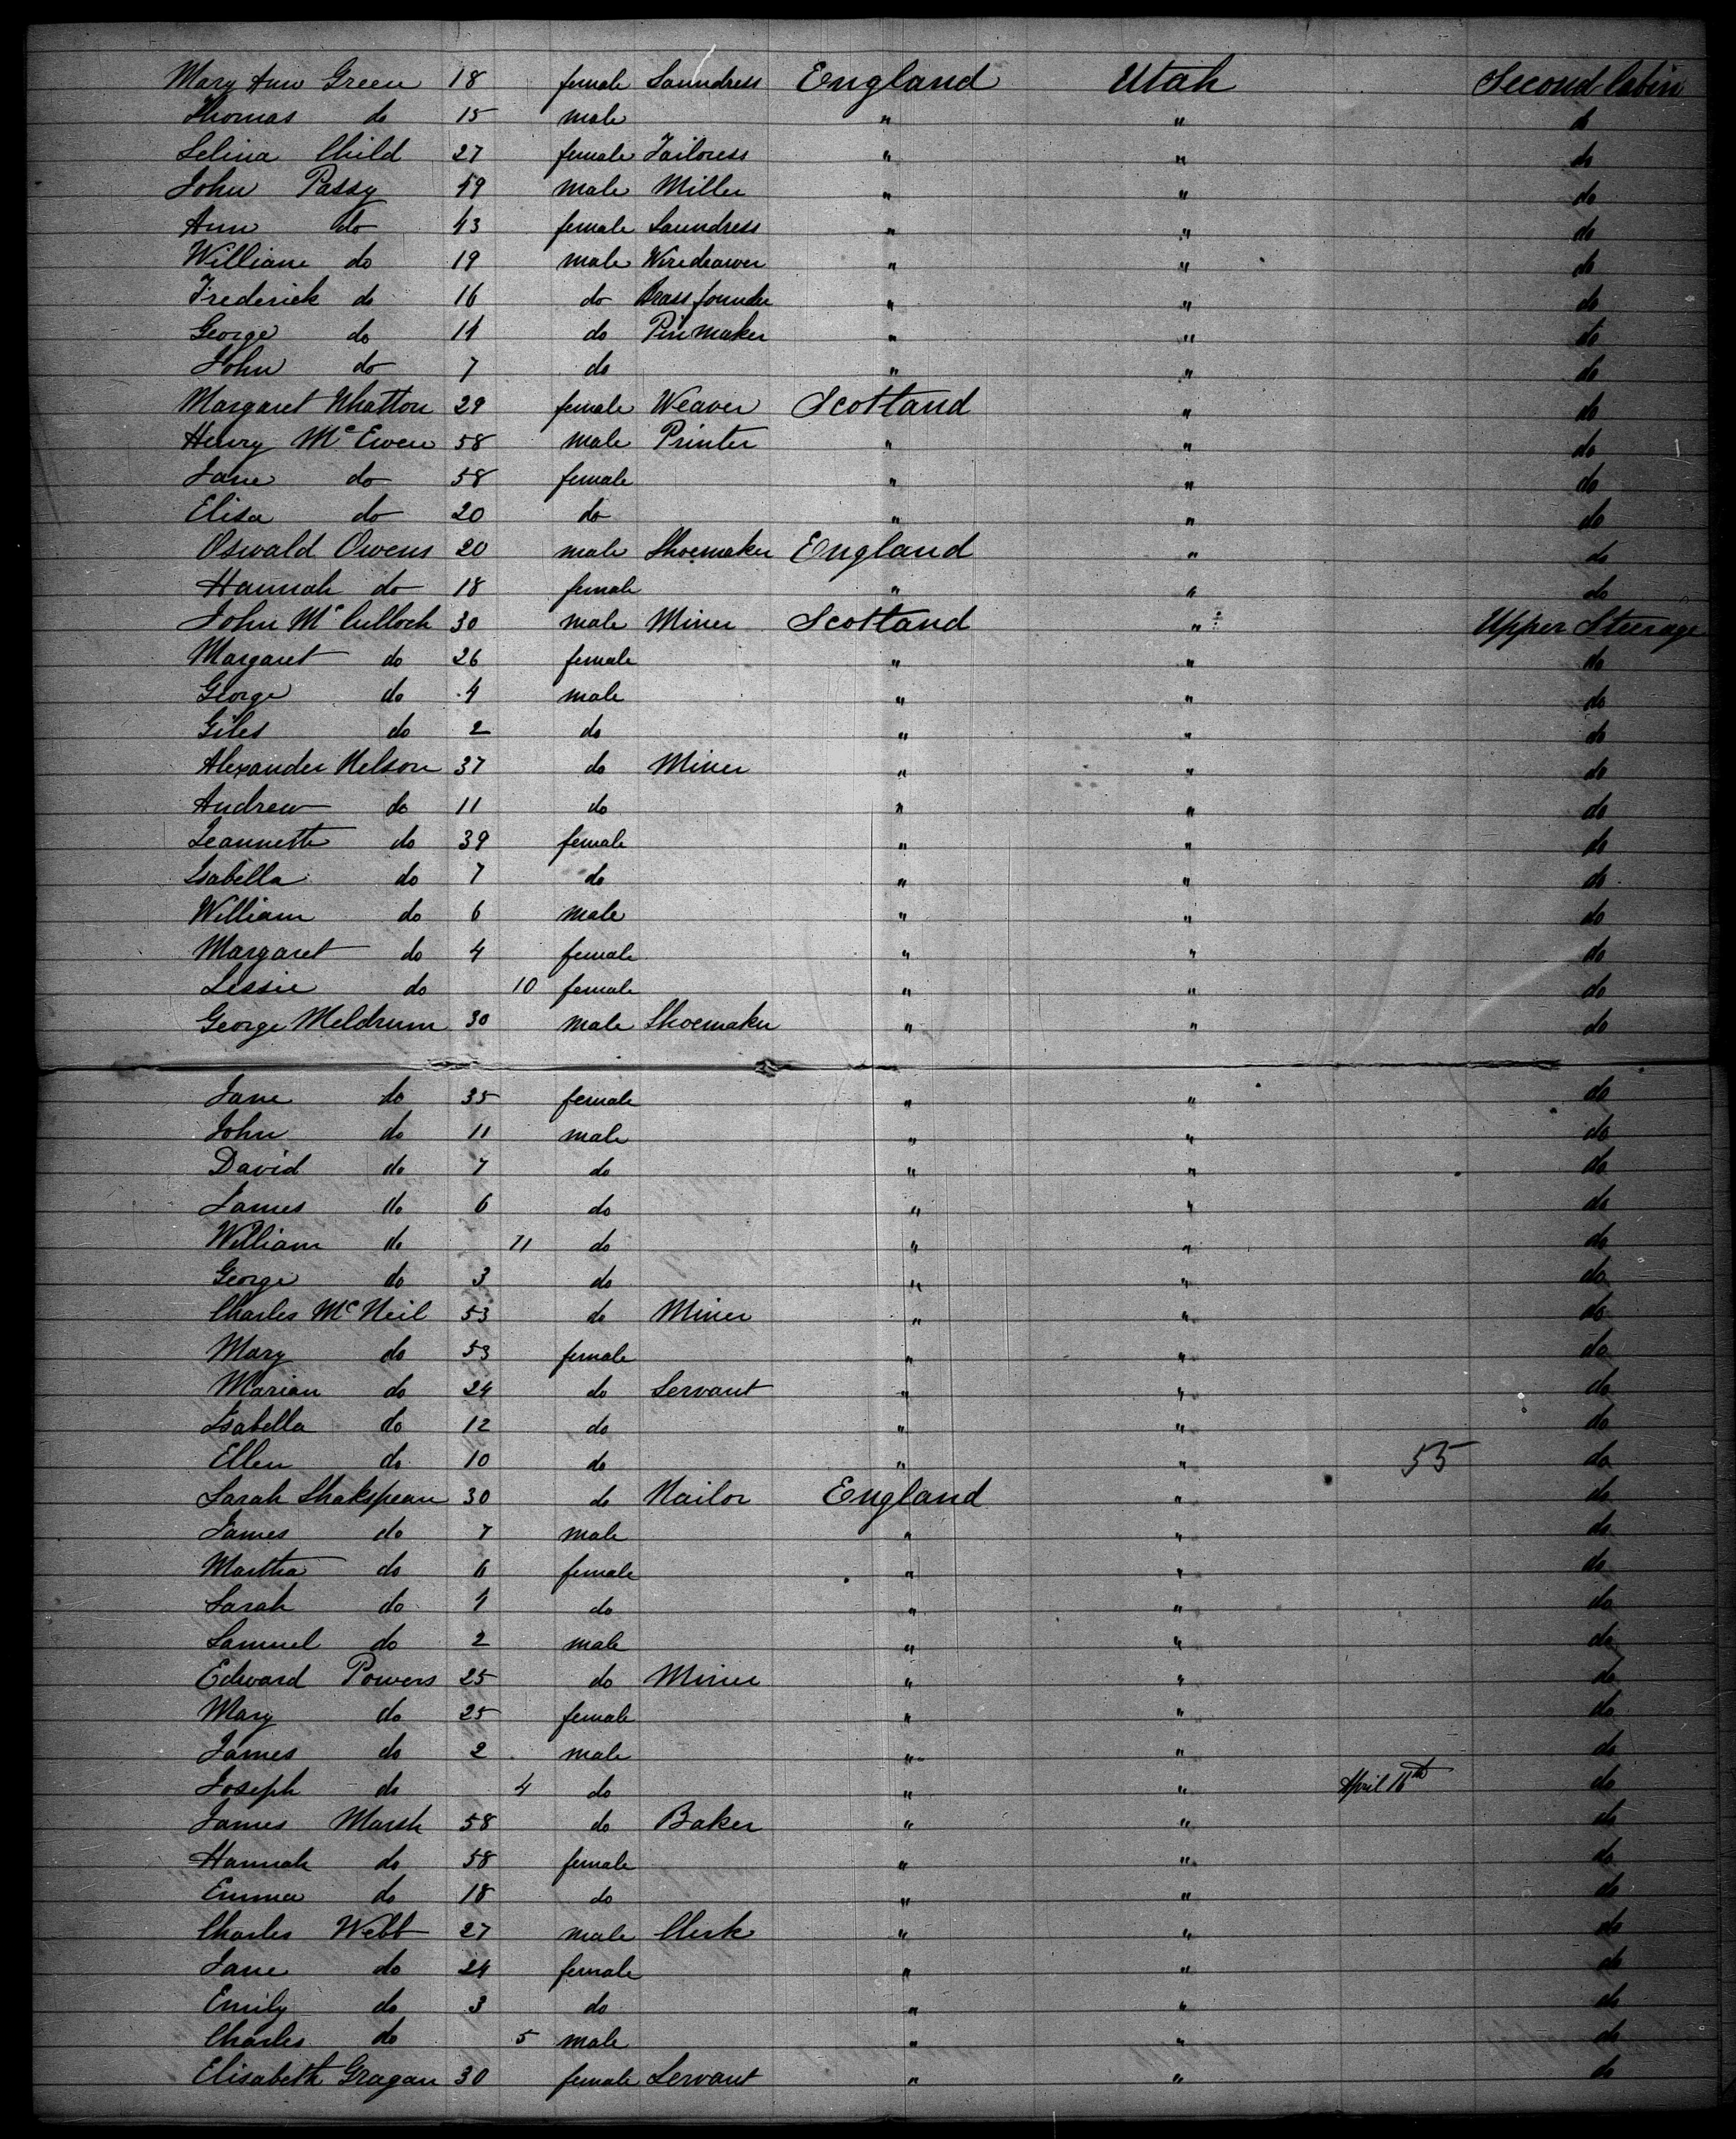 Mary Ann Green 18 female Laundress England Utah Second Cabin
Thomas do 15 male " " do
Selina Child 27 female Tailoress " " do
John Passy 49 male Miller " " do
Ann do 43 female Laundress " " do
William do 19 male Wiredrawer " " do
Frederick do 16 do Brass founder " " do
George do 11 do Pin maker " " do
John do 7 do " " do
Margaret Whatton 29 female Weaver Scotland " do
Henry McEwen 58 male Printer " " do
Jane do 58 female " " do
Elisa do 20 do " " do
Oswald Owens 20 male Shoemaker England " do
Hannah do 18 female " " do
John McCulloch 30 male Miner Scotland " Upper Steerage
Margaret do 26 female " " do
George do 4 male " " do
Giles do 2 do " " do
Alexander Nelson 37 do Miner " " do
Andrew do 11 do " " do
Jeannette do 39 female " " do
Isabella do 7 do " " do
William do 6 male " " do
Margaret do 4 female " " do
Lessie do 10 female " " do
George Meldrum 30 male Shoemaker " " do
Jane do 35 female " " do
John do 11 male " " do
David do 7 do " " do
James do 6 do " " do
William do 11 do " " do
George do 3 do " " do
Charles McNeil 53 do Miner " " do
Mary do 53 female " " do
Marian do 24 do Servant " " do
Isabella do 12 do " " do
Ellen do 10 do " " 55 do
Sarah Shakspear 30 do Nailor England " do
James do 7 male " " do
Martha do 6 female " " do
Sarah do 4 do " " do
Samuel do 2 male " " do
Edward Powers 25 do Miner " " do
Mary do 25 female " " do
James do 2 male " " do
Joseph do 4 do " " April 16th do
James Marsh 58 do Baker " " do
Hannah do 58 female " " do
Emma do 18 do " " do
Charles Webb 27 male Clerk " " do
Jane do 24 female " " do
Emily do 3 do " " do
Charles do 5 male " " do
Elisabeth Gragan 30 female Servant " " do